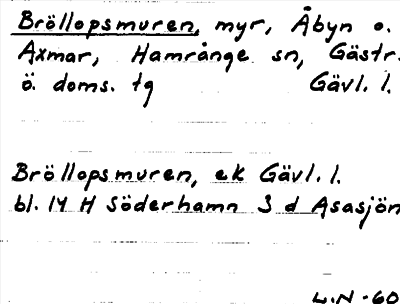 Bröllopsmuren, myr, Åbyn o.
Axmar, Hamrånge sn, Gästr.
ö. doms. tg Gävl. l.
Bröllopsmuren, ek Gävl. l.
bl. 14 H Söderhamn 3 d Asasjön
L.N -60